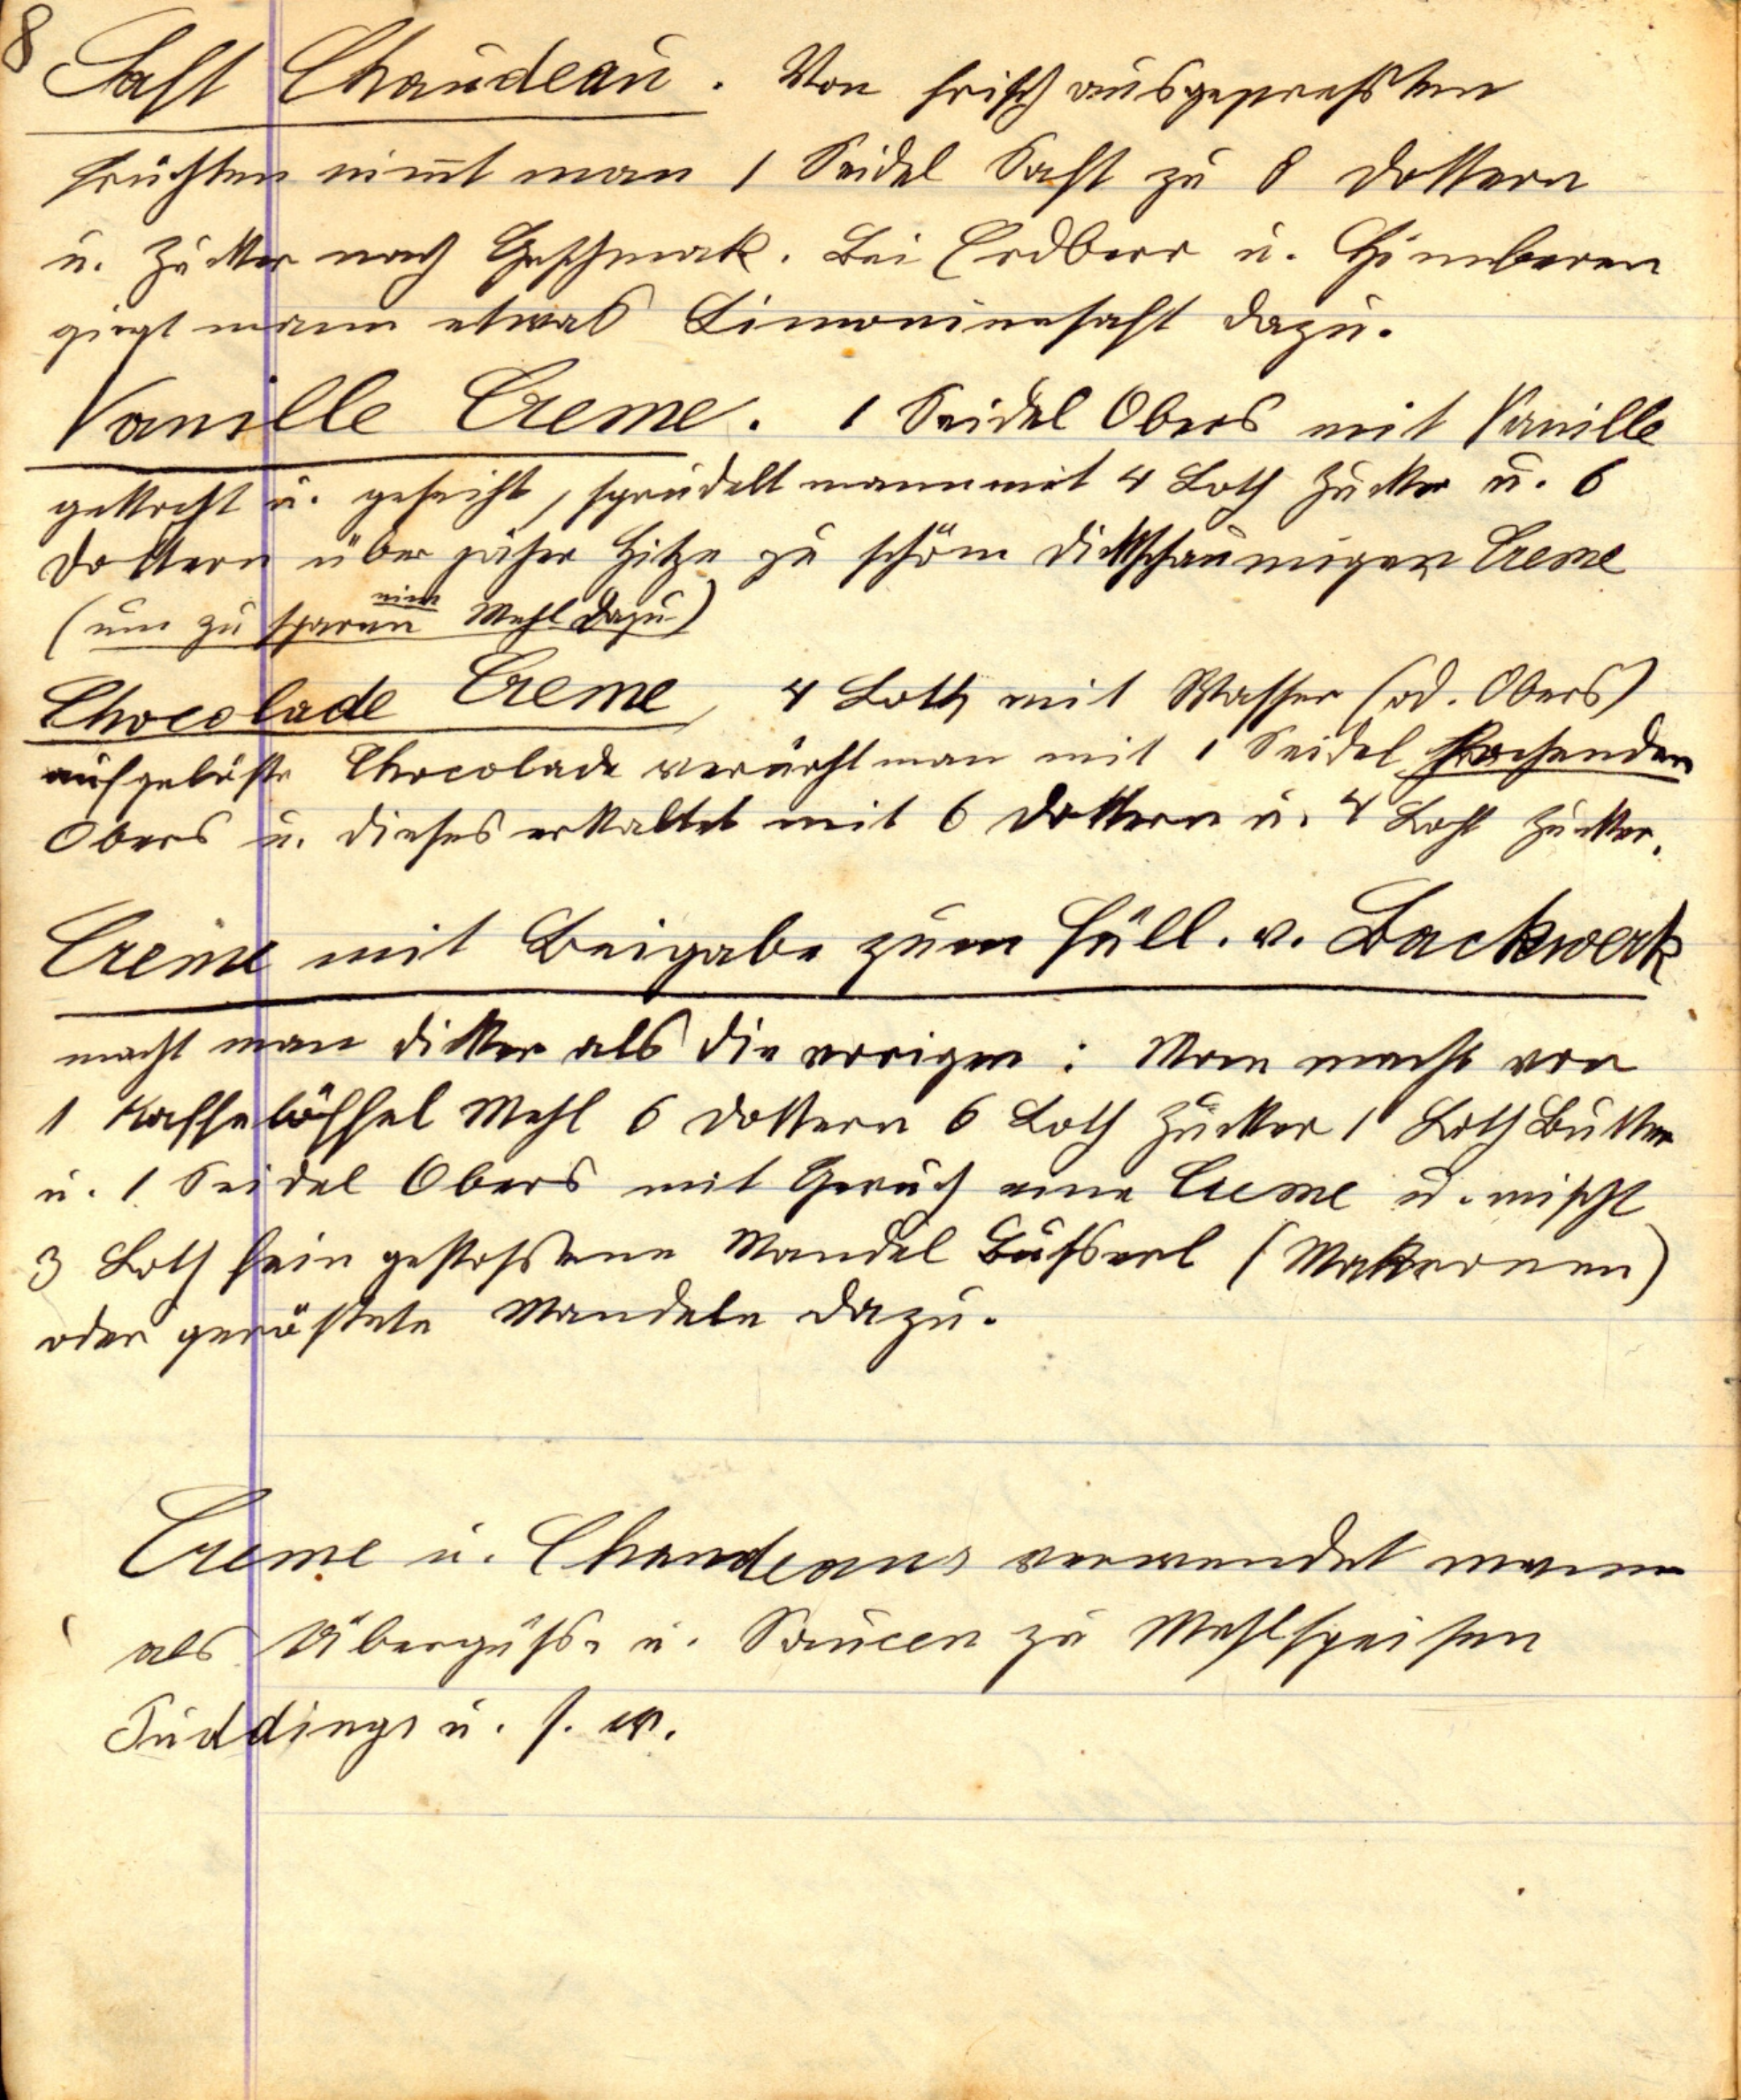 8
Saft Chaudeau. Von frisch ausgepressten
Früchten nim̅t man 1 Seidel Saft zu 8 Dottern
u. Zucker nach Geschmak. Bei Erdbeer u. Himberen
giegt mann etwas Limoninesaft dazu.
Vanille Creme. 1 Seidel Obers mit Vanille
gekocht u. geseiht, sprudelt mann mit 4 Loth Zucker u. 6
Dottern über jäher Hitze zu schöm dickschaumigen Creme
(um zu sparen nim̅ Mehl dazu)
Chocolade Creme, 4 Loth mit Wasser (od. Obers)
aufgelöste Chocolade verührt man mit 1 Seidel kochenden
Obers u. dieses erkaltet mit 6 Dottern u. 4 Loth Zucker.
Creme mit Beigabe zum Füll. v. Backwerk
macht man dicker als die vorigen: Man macht von
1 Kaffelöffel Mehl 6 Dottern 6 Loth Zucker 1 Loth Butter
u. 1 Seidel Obers mit Geruch eine Creme u. mischt
3 Loth fein gestossene Mandel Busserl (Makronen)
oder geröstete Mandeln dazu.
Creme u. Chaudeaus verwendet mann
als Übergüsse u. Saucen zu Mehlspeisen
Puddings u. s. w.